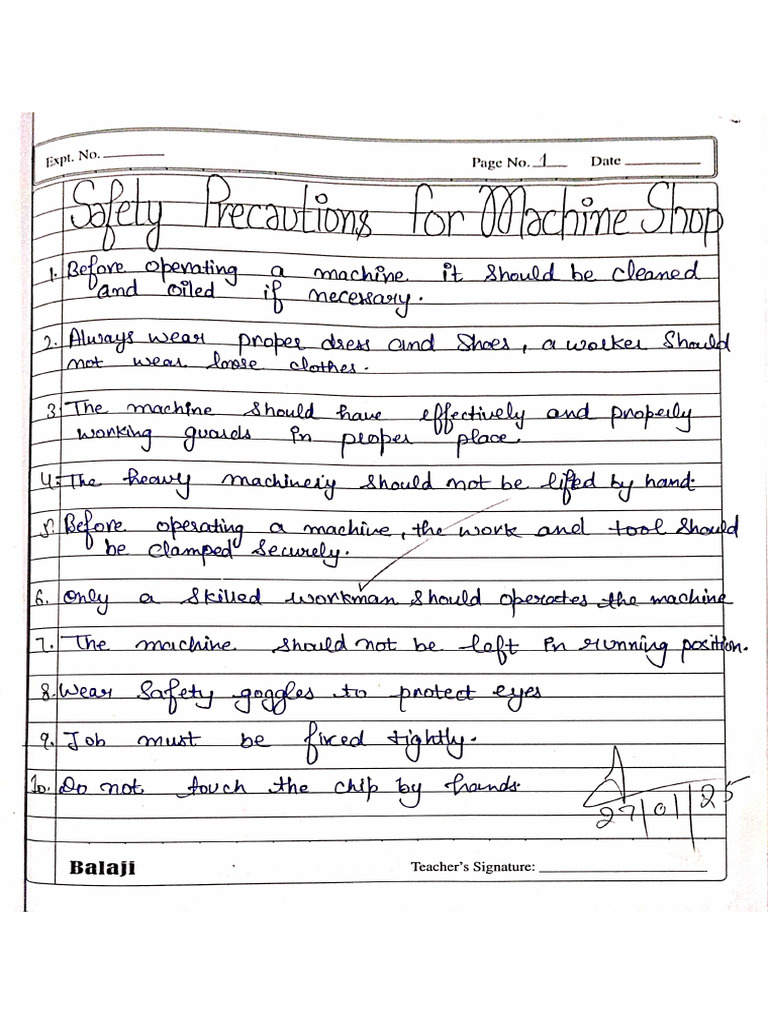 Expt. No.
Page No. 1 Date
Safety Precautions for Machine Shop
1. Before operating a machine it should be cleaned
and oiled if necessary.
2. Always wear proper dress and shoes, a worker should
not wear loose clothes.
3. The machine should have effectively and properly
working guards in proper place.
4. The heavy machinery should not be lifted by hand.
5. Before operating a machine, the work and tool should
be clamped securely.
6. Only a skilled workman should operates the machine
7. The machine should not be left in running position.
8. Wear safety goggles to protect eyes
9. Job must be fixed tightly.
10. Do not touch the chip by hands.
27/01/25
Balaji
Teacher's Signature: